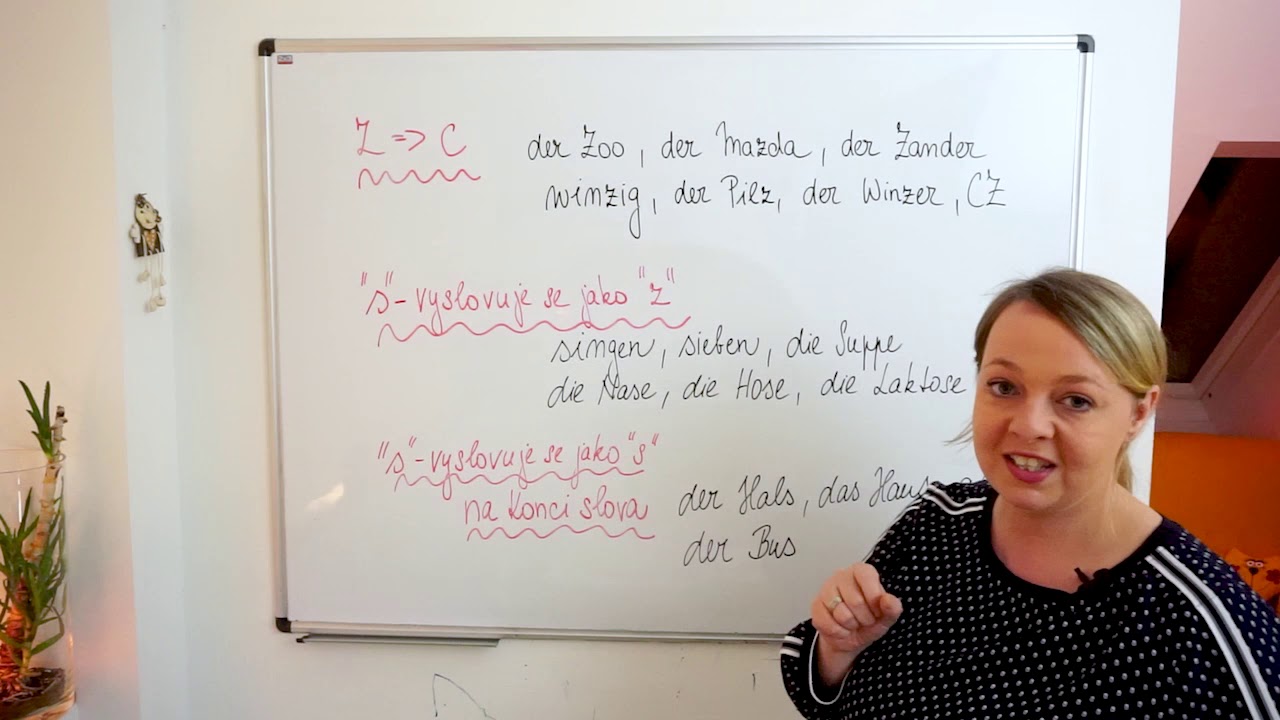 Z => C der Zoo, der Mazda, der Zander
winzig, der Pilz, der Winzer, CZ
"s"- vyslovuje se jako "z"
singen, sieben, die Suppe
die Nase, die Hose, die Laktose
"s"-vyslovuje se jako "s"
na konci slova der Hals, das Haus
der Bus